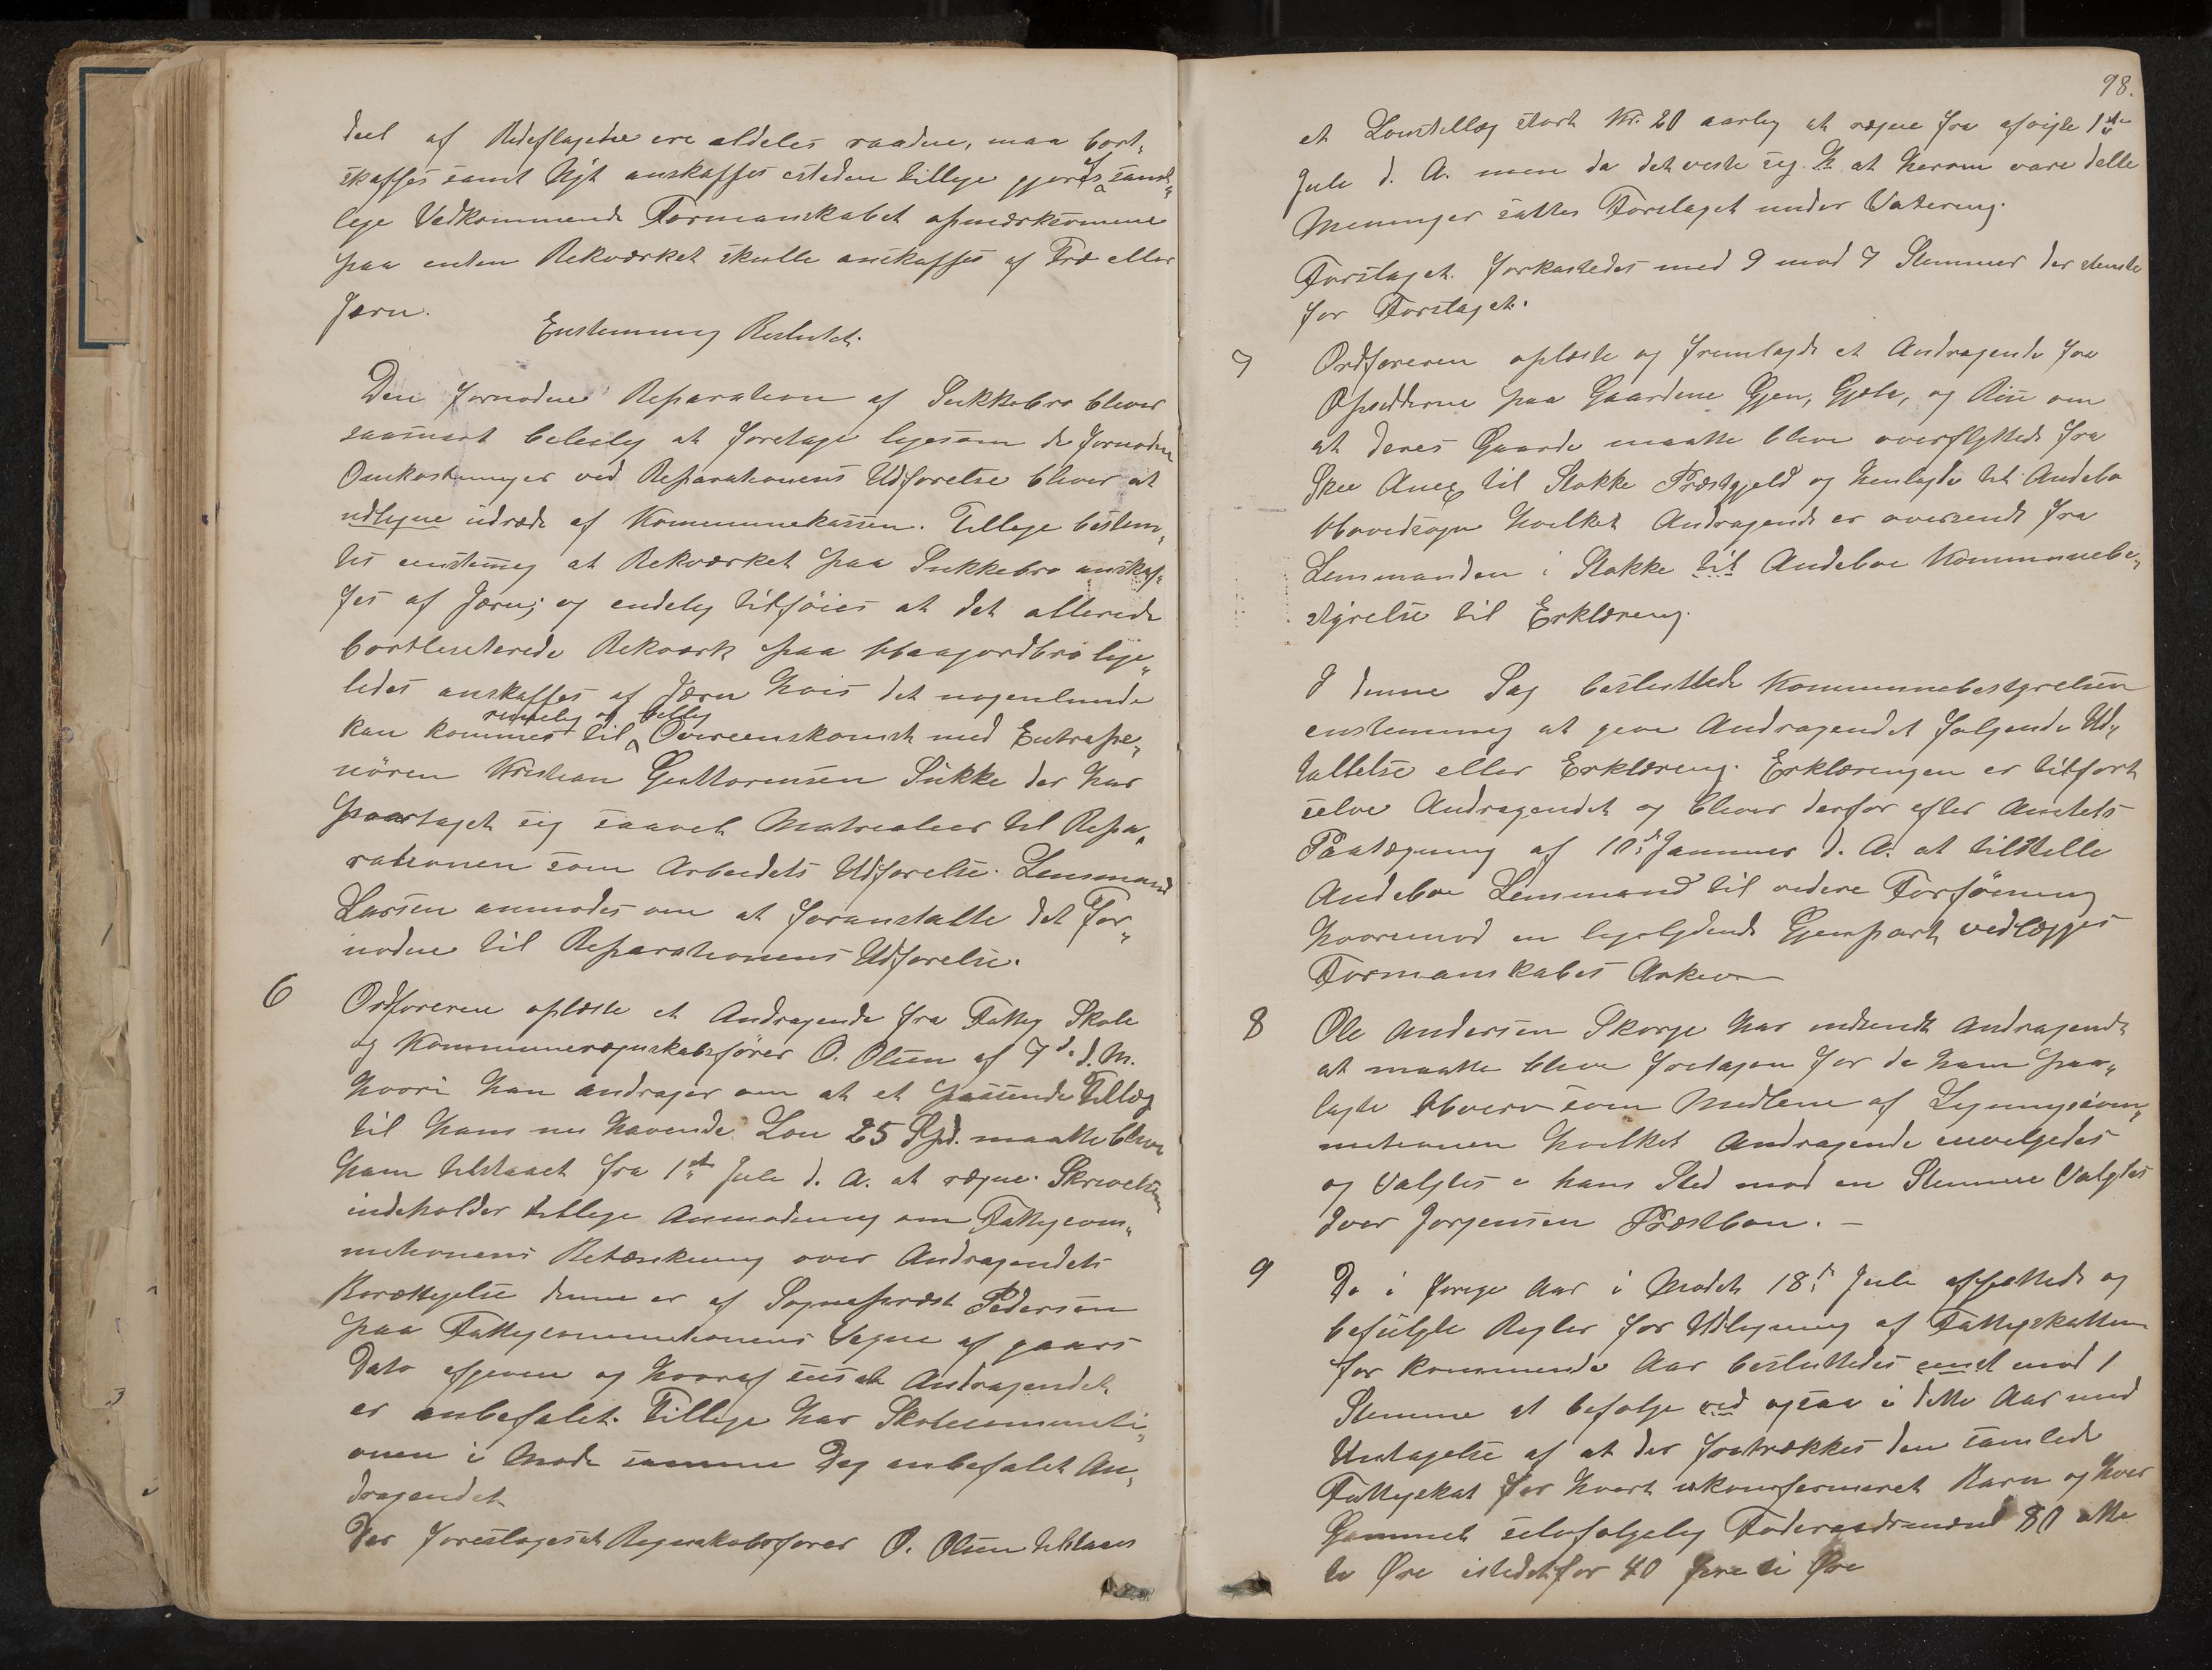 deel af Rideflagene ere aldeles raadne, maa bort„
skaffes samt Nyt anskaffes isteden tillige gjøres af samt„
lige Vedkommende Formanskabet opmærksomme
paa enten Rekværket skulle anskaffes af Træ eller
Jærn.
Enstemmig Besluted.
Den fornødne Reparation af Sukkebro bliver
saasnart belielig at foretage ligesom de fornødne
Omkostninger ved Reparationens Udførelse bliver at
udligne udrede af Kommunekassen. Tillige bestem„
tes enstemig at Rekværket paa Sukkebro anskaf„
fes af Jærn; og endelig tilføies at det allerede
bortliciterede Rekværk paa Haajordbro lige„
ledes anskaffes af Jærn hvis det nogenlunde
rimelig og billig
kan kommes til Overeenskomst med Entrepre„
nøren Kristian Guttormsen Sukke der har
paataget sig saavel Matrealier til Repa„
rationen som Arbeidets Udførelse. Lensmand
Larsen anmodes om at foranstalte det For„
nødne til Reparationens Udførelse.
6 Ordføreren oplæste et Andragende fra Fattig Skole
og Kommuneregnskabsfører O. Olsen af 7de d. M.
hvori han andrager om at et passende Tillæg
til hans nu havende Løn 25 Spd. maatte blive
ham tilstaaet fra 1ste Juli d. A. at regne. Skrivelsen
indeholder tillige Anmodning om Fattigcom„
missionens Betænkning over Andragendets
Berettigelse denne er af Sogneprest Pedersen
paa Fattigcommissionens Vegne af gaars
Dato afgiven og hvoraf sees at Andragendet
er anbefalet. Tillige har Skolecommissi„
onen i Møde samme Dag anbefalet An„
dragendet
Der foreslagest Regnskabsfører O. Olsen tilstaaes
98.
et Lønstillæg stort Kr. 20 aarlig at regne fra afvigte 1ste
Juli d. A. men da det viste sig at herom vare delte
Meninger sattes Forslaget under Votering.
Forslaget forkastedes med 9 mod 7 Stemmer der stemte
for Forslaget.
7 Ordføreren oplæste og fremlagde et Andragende fra
Opsidderne paa Gaardene Gjen, Gjæle, og Riis om
at deres Gaarde maatte blive overflyttede fra
Skee Anex til Stokke Præstgjeld og henlagde til Andebo
Hovedsogn hvilket Andragende er oversendt fra
Lensmanden i Stokke til Andeboe Kommunebe„
styrelse til Erklæring.
I denne Sag besluttede Kommunebestyrelsen
enstemmig at give Andragendet følgende Ud„
tallelse eller Erklæring. Erklæringen er tilført
selve Andragendet og bliver derfor efter Amtets
Paategning af 10de Januar d. A. at tilstille
Andeboe Lensmand til videre Forføining
hvorimod en ligelydende Gjenpart vedlægges
Formanskabes Arkiv
8 Ole Andersen Skorge har indsendt Andragende
at maatte blive fretagen for de ham paa„
lagte Hverv som Medlem af Ligningscom„
missionen hvilket Andragende innvilgedes
og Valgtes i hans Sted mod en Stemme Valgtes
Iver Jørgensen Præstbøn. —
9 De i forige Aar i Mødet 18de Juli affattede og
befulgte Regler for Udligning af Fattigskatten
for kommende Aar besluttedes imod mod 1
Stemme at befølge ved ogsaa i dette Aar med
Undtagelse af at der fratrækkes den samlede
Fattigskat for hvert ukonfirmeret Barn og hver
Gammel selvfølgelig Føderaadsmænd 80 otte
ti Øre istedetfor 40 fireti Øre